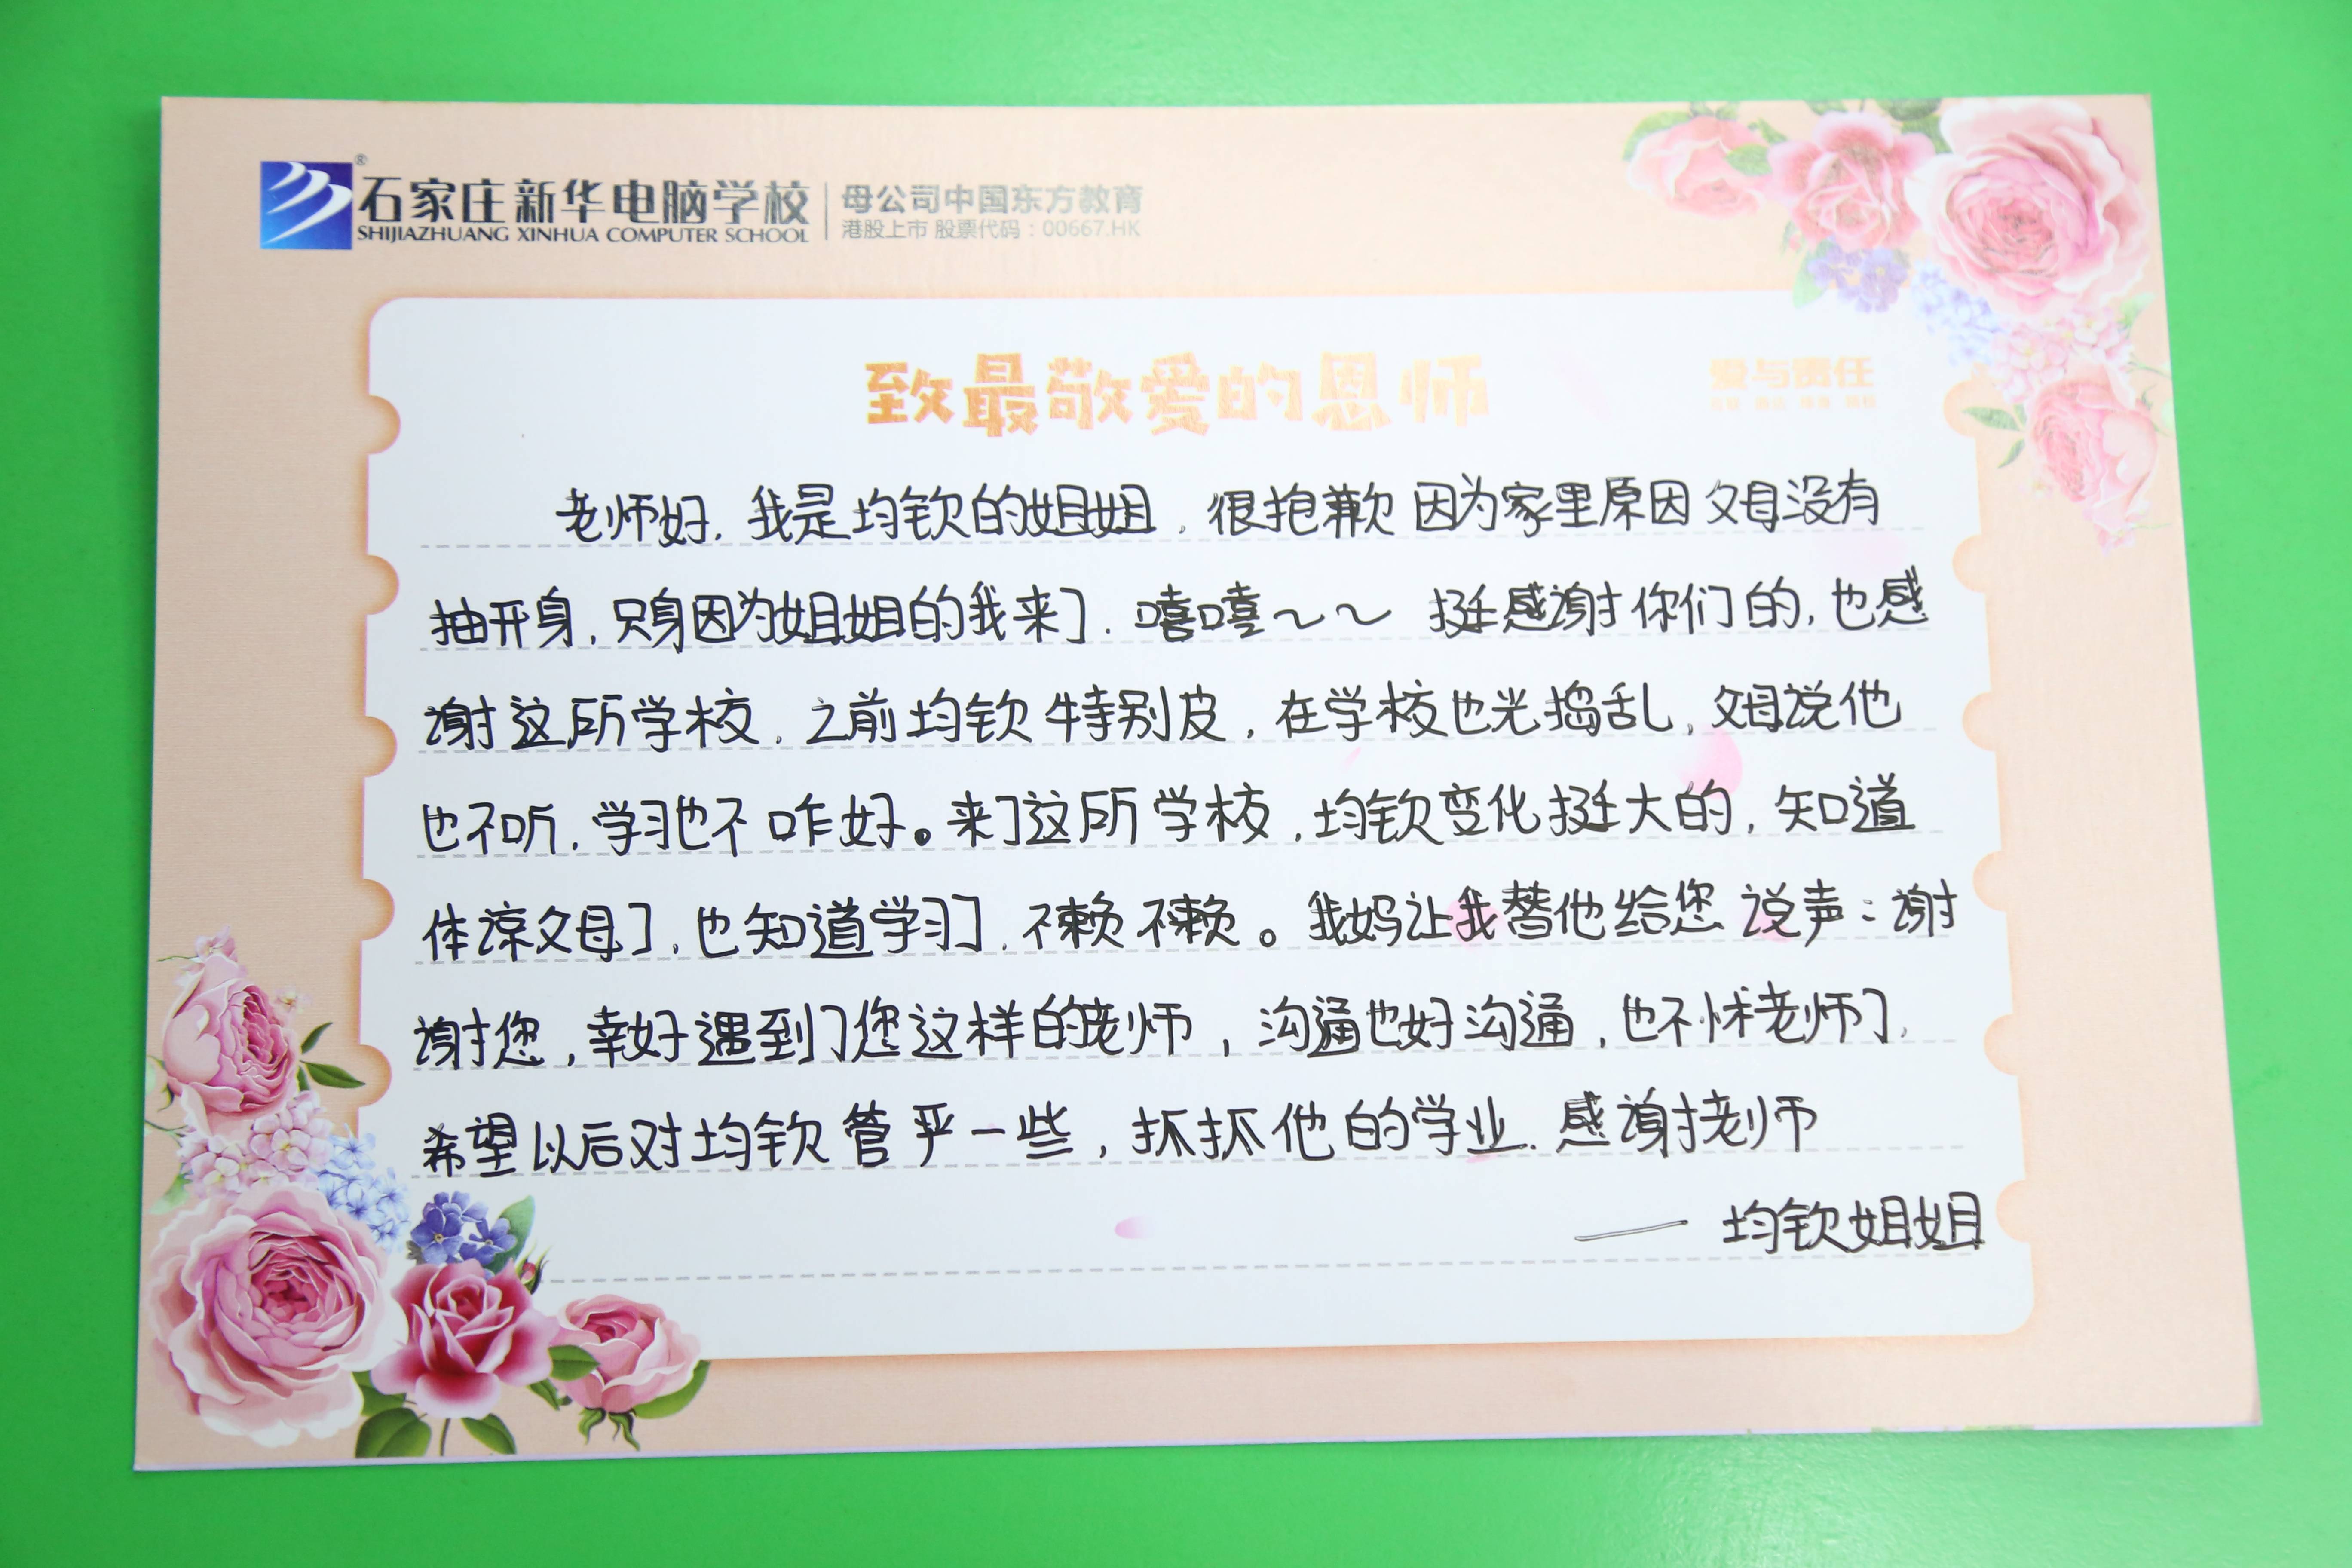 石家庄新华电脑学校
SHIJIAZHUANG XINHUA COMPUTER SCHOOL
母公司中国东方教育
港股上市 股票代码：00667.HK
致最敬爱的恩师
爱与责任
老师好，我是均钦的姐姐，很抱歉因为家里原因父母没有
抽开身，只身因为姐姐的我来了. 嘻嘻～～ 挺感谢你们的，也感
谢这所学校，之前均钦特别皮，在学校也光捣乱，父母说他
也不听，学习也不咋好。来了这所学校，均钦变化挺大的，知道
体谅父母了，也知道学习了，不赖不赖。我妈让我替他给您说声：谢
谢您，幸好遇到了您这样的老师，沟通也好沟通，也不怵老师了，
希望以后对均钦管乎一些，抓抓他的学业. 感谢老师
—— 均钦姐姐